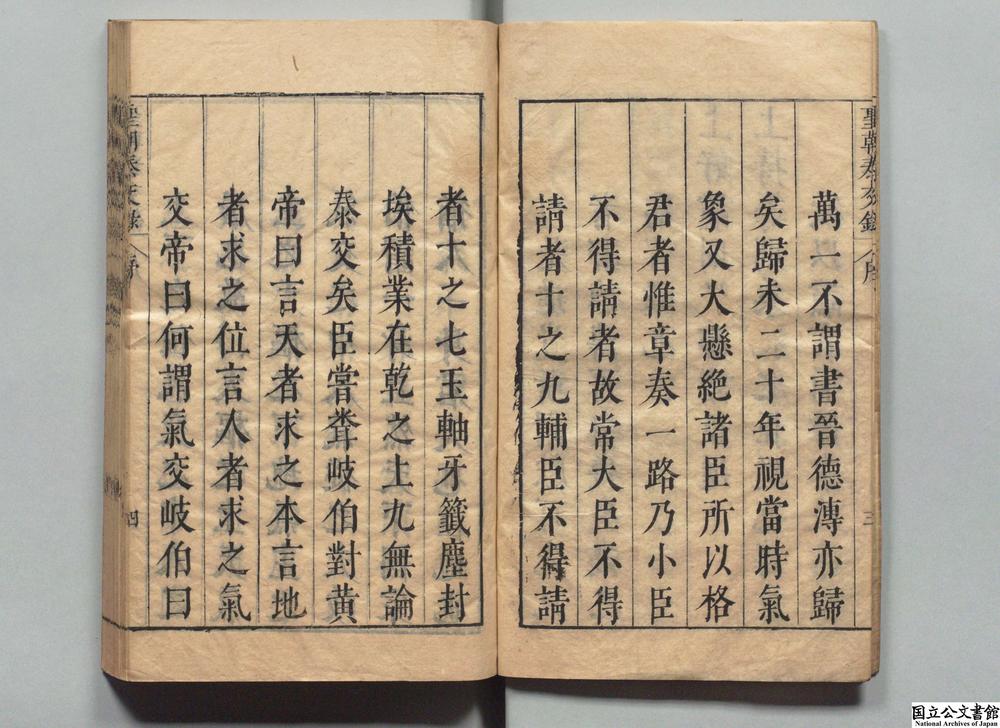 聖朝泰交錄 序 三
萬一不謂書晉德溥亦歸
矣歸未二十年視當時氣
象又大懸絶諸臣所以格
君者惟章奏一路乃小臣
不得請者故常大臣不得
請者十之九輔臣不得請
者十之七玉軸牙籤塵封
埃積業在乾之上九無論
泰交矣臣嘗聋岐伯對黄
帝曰言天者求之本言地
者求之位言人者求之氣
交帝曰何謂氣交岐伯曰
聖朝泰交錄 序 四
国立公文書館
National Archives of Japan